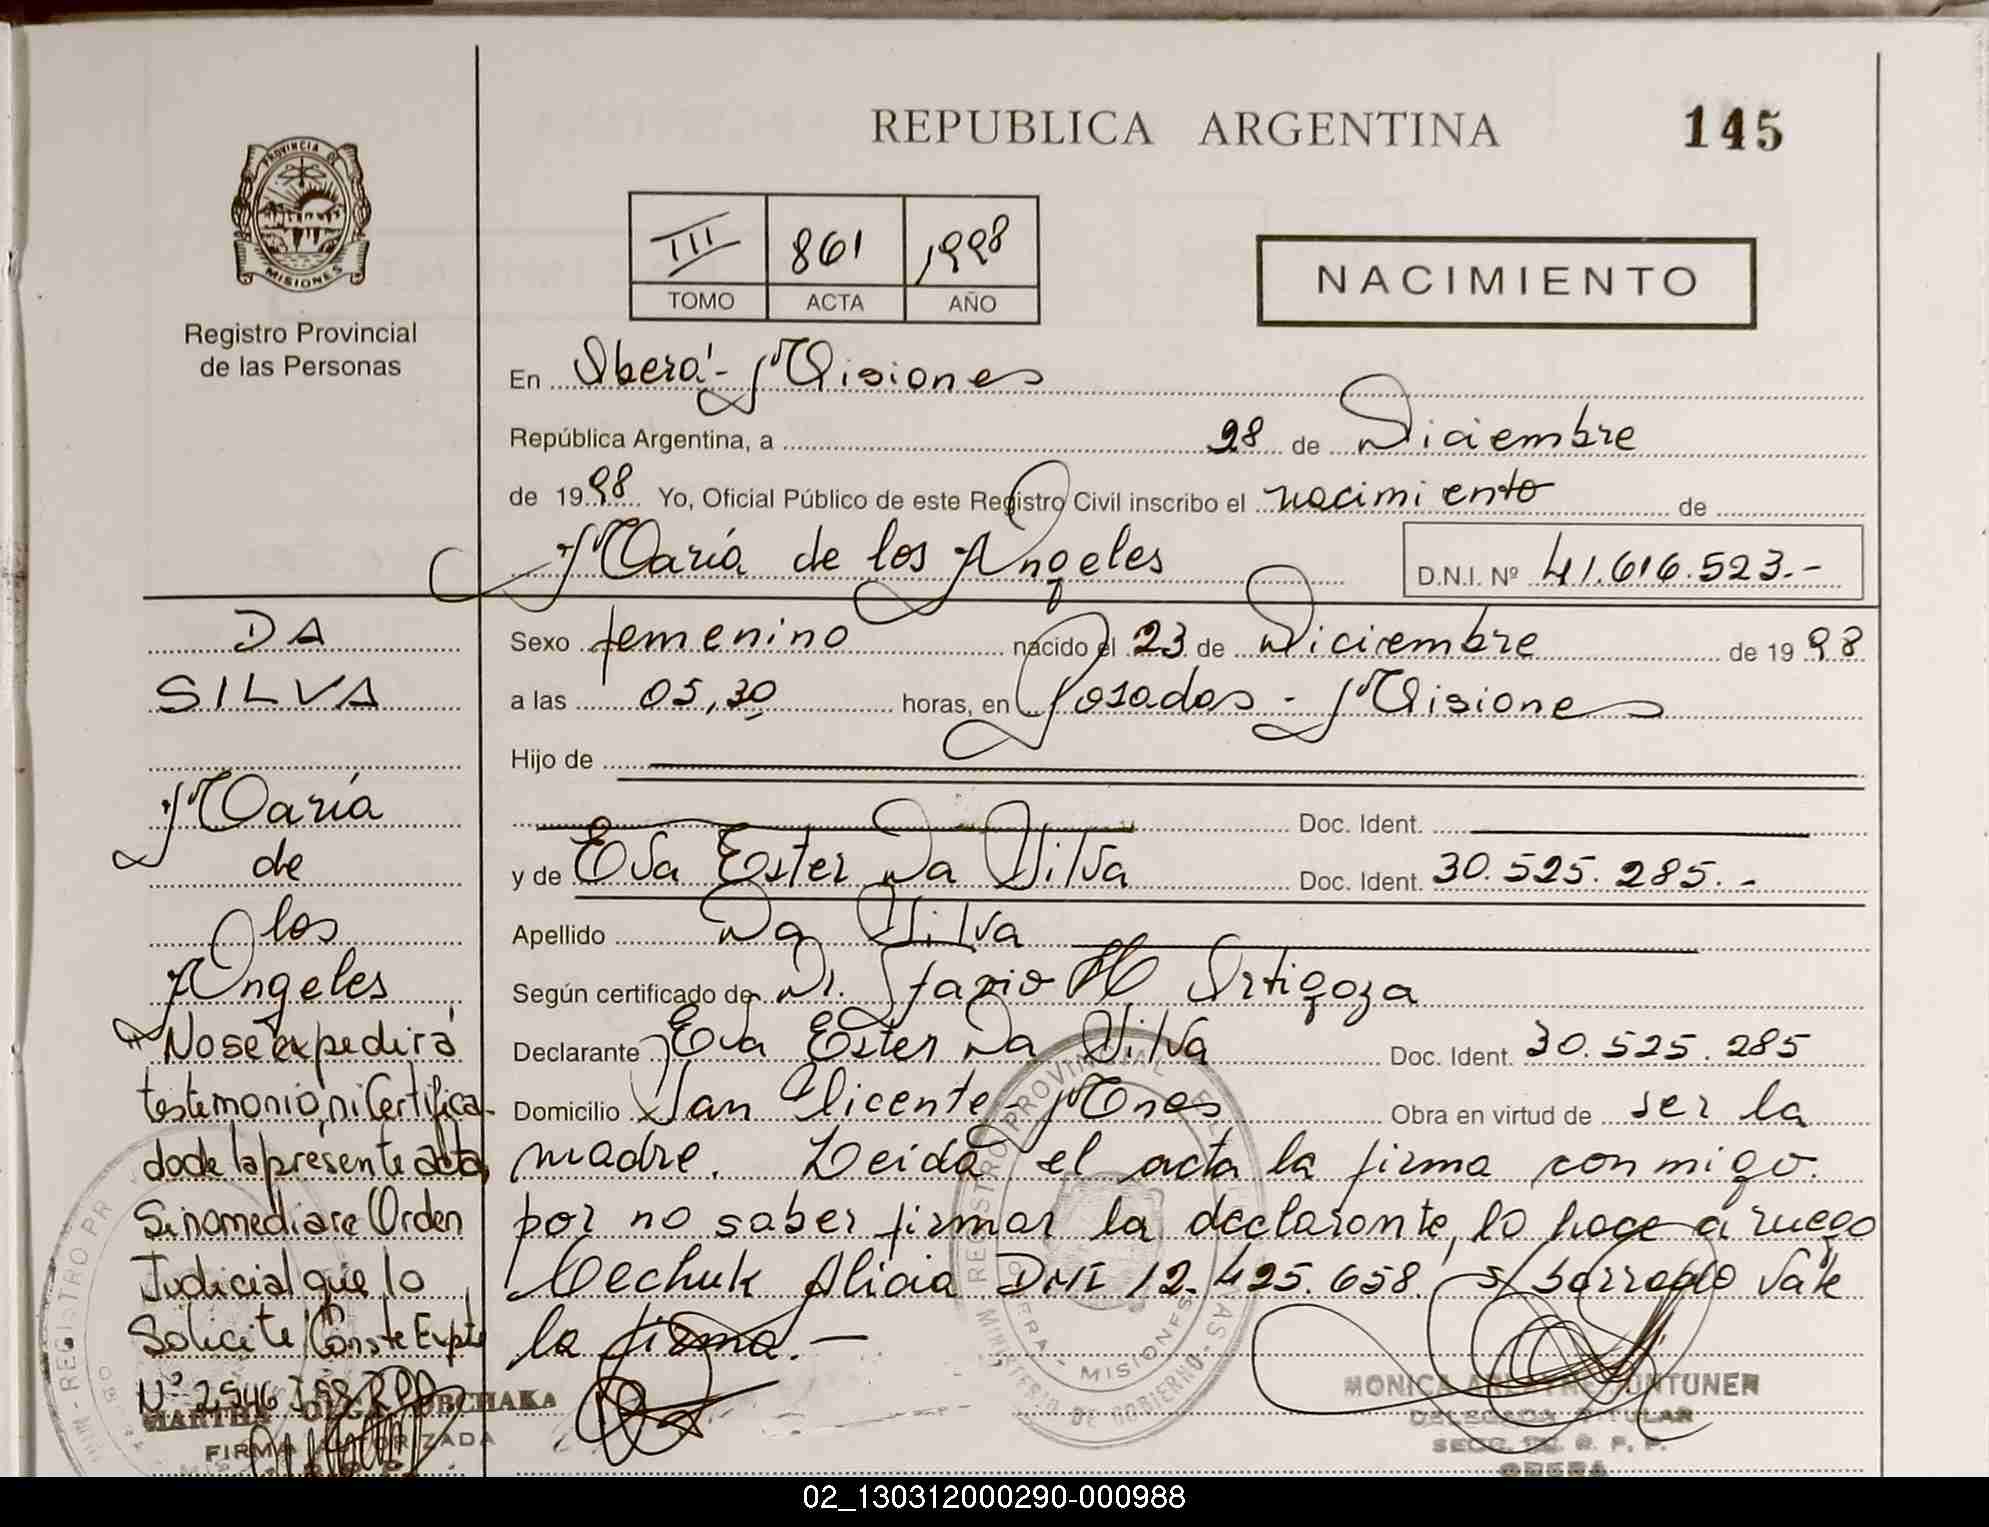 REPUBLICA ARGENTINA
145
PROVINCIA DE
MISIONES
Registro Provincial
de las Personas
III 861 1998
TOMO ACTA AÑO
NACIMIENTO
En Oberá - Misiones
República Argentina, a 28 de Diciembre
de 1998 Yo, Oficial Público de este Registro Civil inscribo el nacimiento de
María de los Angeles D.N.I. Nº 41.616.523.-
Sexo femenino nacido el 23 de Diciembre de 1998
a las 05,30 horas, en Posadas - Misiones
Hijo de
Doc. Ident.
y de Eva Ester Da Silva Doc. Ident. 30.525.285.-
Apellido Da Silva
Según certificado de Dr. H Ortigoza
Declarante Eva Ester Da Silva Doc. Ident. 30.525.285
Domicilio San Vicente - Mnes Obra en virtud de ser la
madre. Leida el acta la firma conmigo.
por no saber firmar la declarante, lo hace a ruego
Alicia DNI 12.425.658. s/ borrado Vale
la firma.-
DA
SILVA
María
de
los
Angeles
"No se expedirá
testimonio, ni Certifica-
do de la presente acta,
Si no mediare Orden
Judicial que lo
Solicite Conste Expte
Nº 2546
MARTHA OLGA
FIRMA AUTORIZADA
REGISTRO PROVINCIAL DE LAS
MINISTERIO DE GOBIERNO
OBERA - MISIONES
MONICA
DELEGADA TITULAR
OBERA
02_130312000290-000988